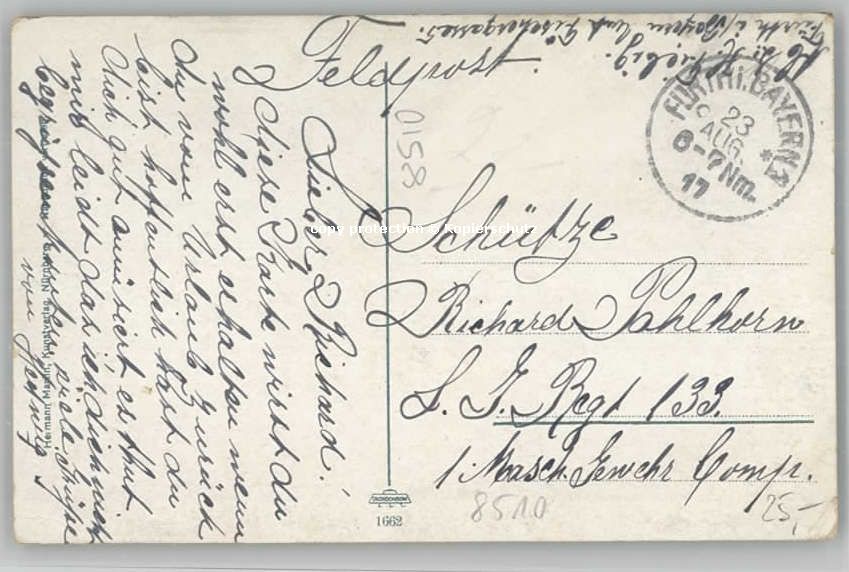 Feldpost.
Abs. H. Liebig.
Fürth i/Bayern Fischergasse 5.
FÜRTH i. BAYERN *2
23
AUG.
6-7 Nm.
17
Schütze
Richard Pahlhorn
L. J. Regt 133.
1 Masch Gewehr Comp.
Lieber Richard!
Diese Karte wirst du
wohl erst erhalten wenn
du vom Urlaub zurück
bist hoffentlich hast du
dich gut amüsiert es thut
mir leid das ich dich nich
begrüssen konnte viele Grüße
von
0158
8510
25,-
1662
Hermann Martin, Kunstverlag, Nürnberg
copy protection © Kopierschutz